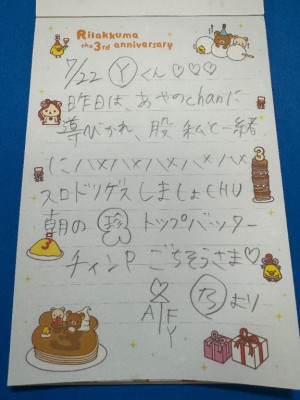 Rilakkuma
the 3rd anniversary
7/22 Ⓨくん♡♡♡
昨日は、あやのchanに
導びかれ、股 私と一緒
にハメハメハメハメハメ
スロドリゲスしましょCHU
朝の 珍 トップバッター
チィンP ごちそうさま♡
A F
Y
より
3
3